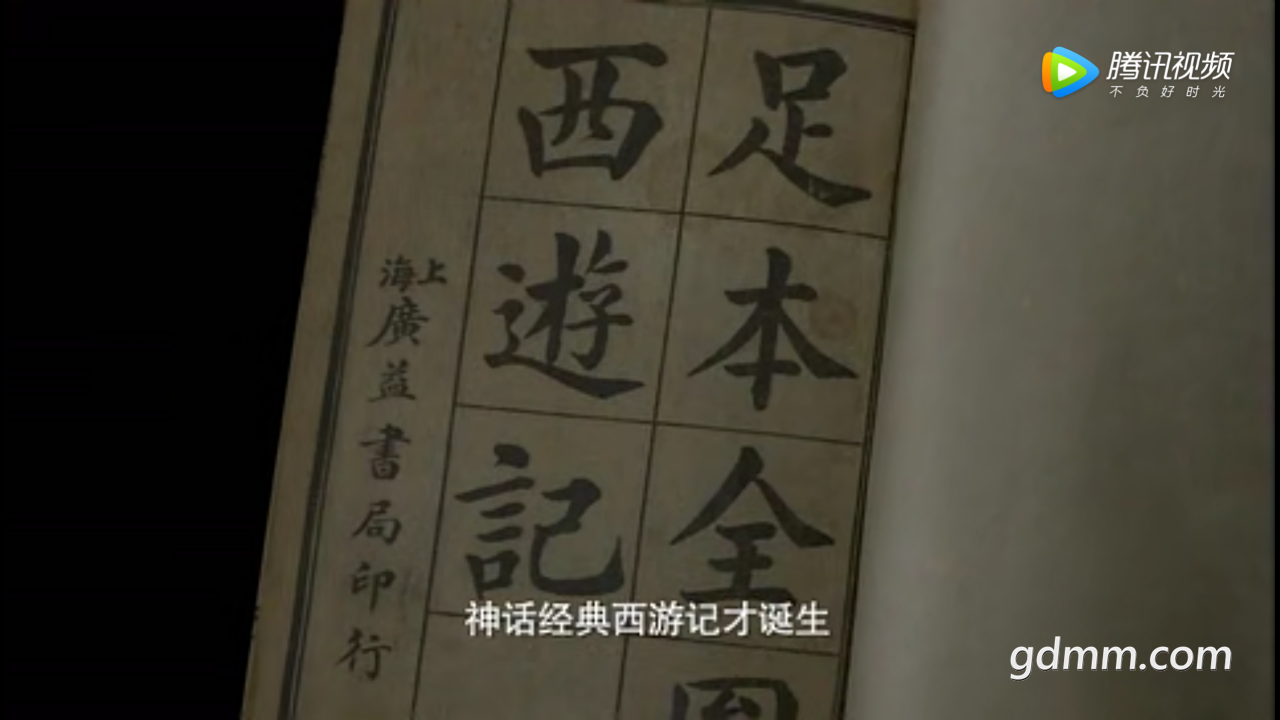 足本全
西遊記
上海廣益書局印行
神话经典西游记才诞生
腾讯视频
不负好时光
gdmm.com